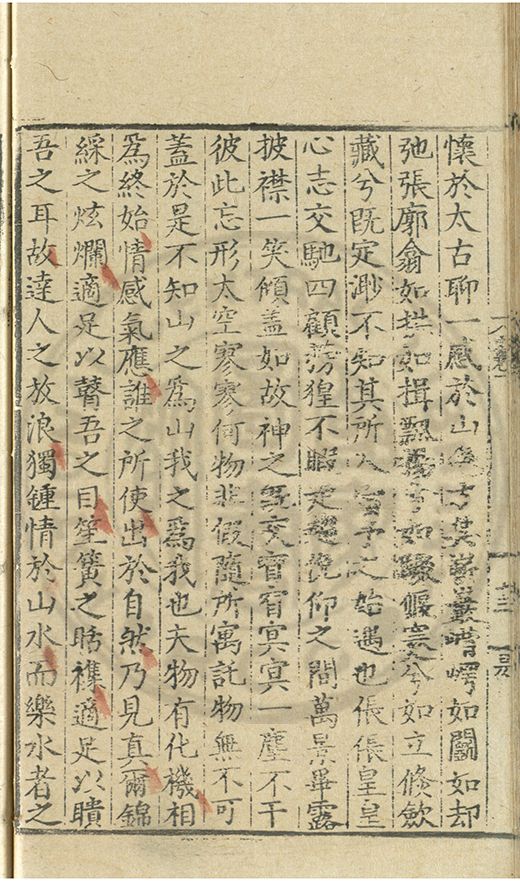 懷於太古聊一感於山
如鬪如却
弛張廓翕如拱如揖飄
如
兮如立倏歛
藏兮既定渺不知其所入
予之始遇也倀倀皇皇
心志交馳四顧徬徨不暇
俛仰之間萬景畢露
披襟一笑傾盖如故神之既交窅窅冥冥一塵不干
彼此忘形太空寥寥何物非假隨所寓託物無不可
盖於是不知山之爲山我之爲我也夫物有化機相
爲終始情感氣應誰之所使出於自然乃見真爾錦
綵之炫爛適足以瞽吾之目笙簧之聒襍適足以聵
吾之耳故達人之放浪獨鍾情於山水而樂水者之